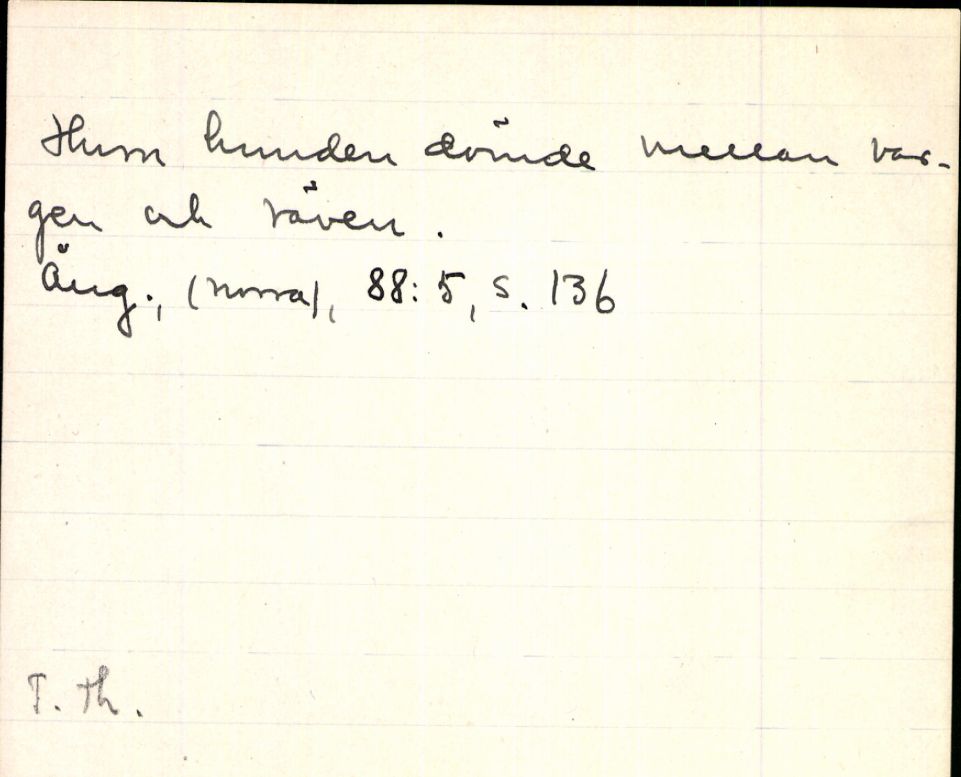 Hurn hunden dömde mellan var-
gen och räven.
Äng., (norra), 88:5, s. 136
T. Th.